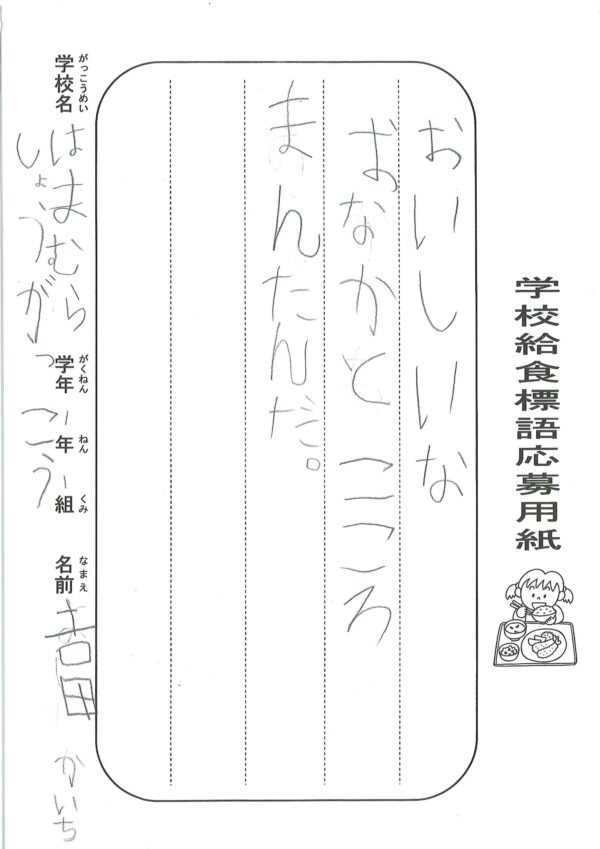 学校給食標語応募用紙
おいしいな
おなかとこころ
まんたんだ。
がっこうめい
学校名 はまむら
しょうがっこう
がくねん ねん くみ
学年 一年 一組
なまえ
名前 吉田 かいち